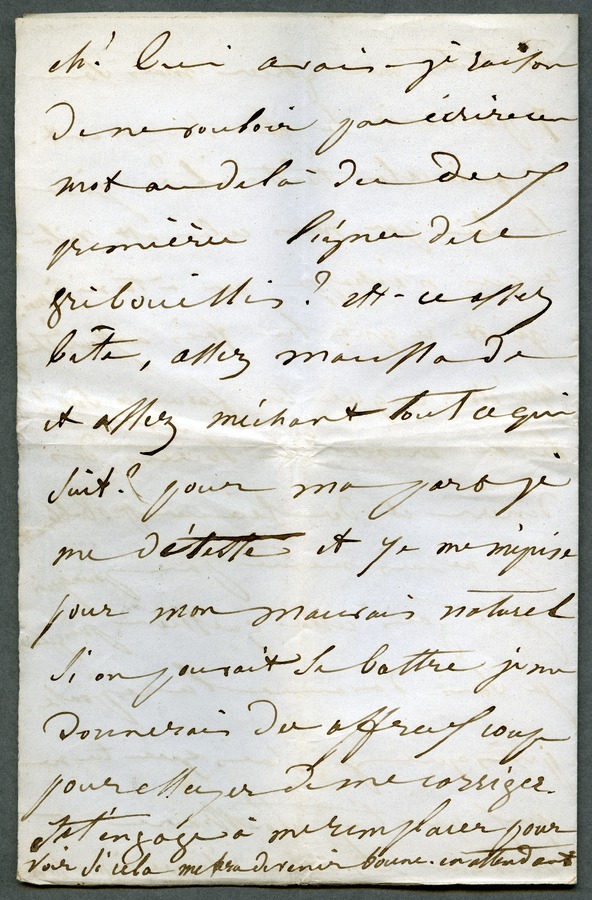 eh! bien avais-je raison
de ne vouloir pas écrire un
mot au delà des deux
premières lignes de ce
gribouillis? est-ce assez
bête, assez maussade
et assez méchant tout ce qui
suit? pour ma part je
me déteste et je me méprise
pour mon mauvais naturel
si on pouvait se battre je me
donnerais des affreux coups
pour essayer de me corriger.
Je t'engage à me remplacer pour
voir si cela me fera devenir bonne. en attendant